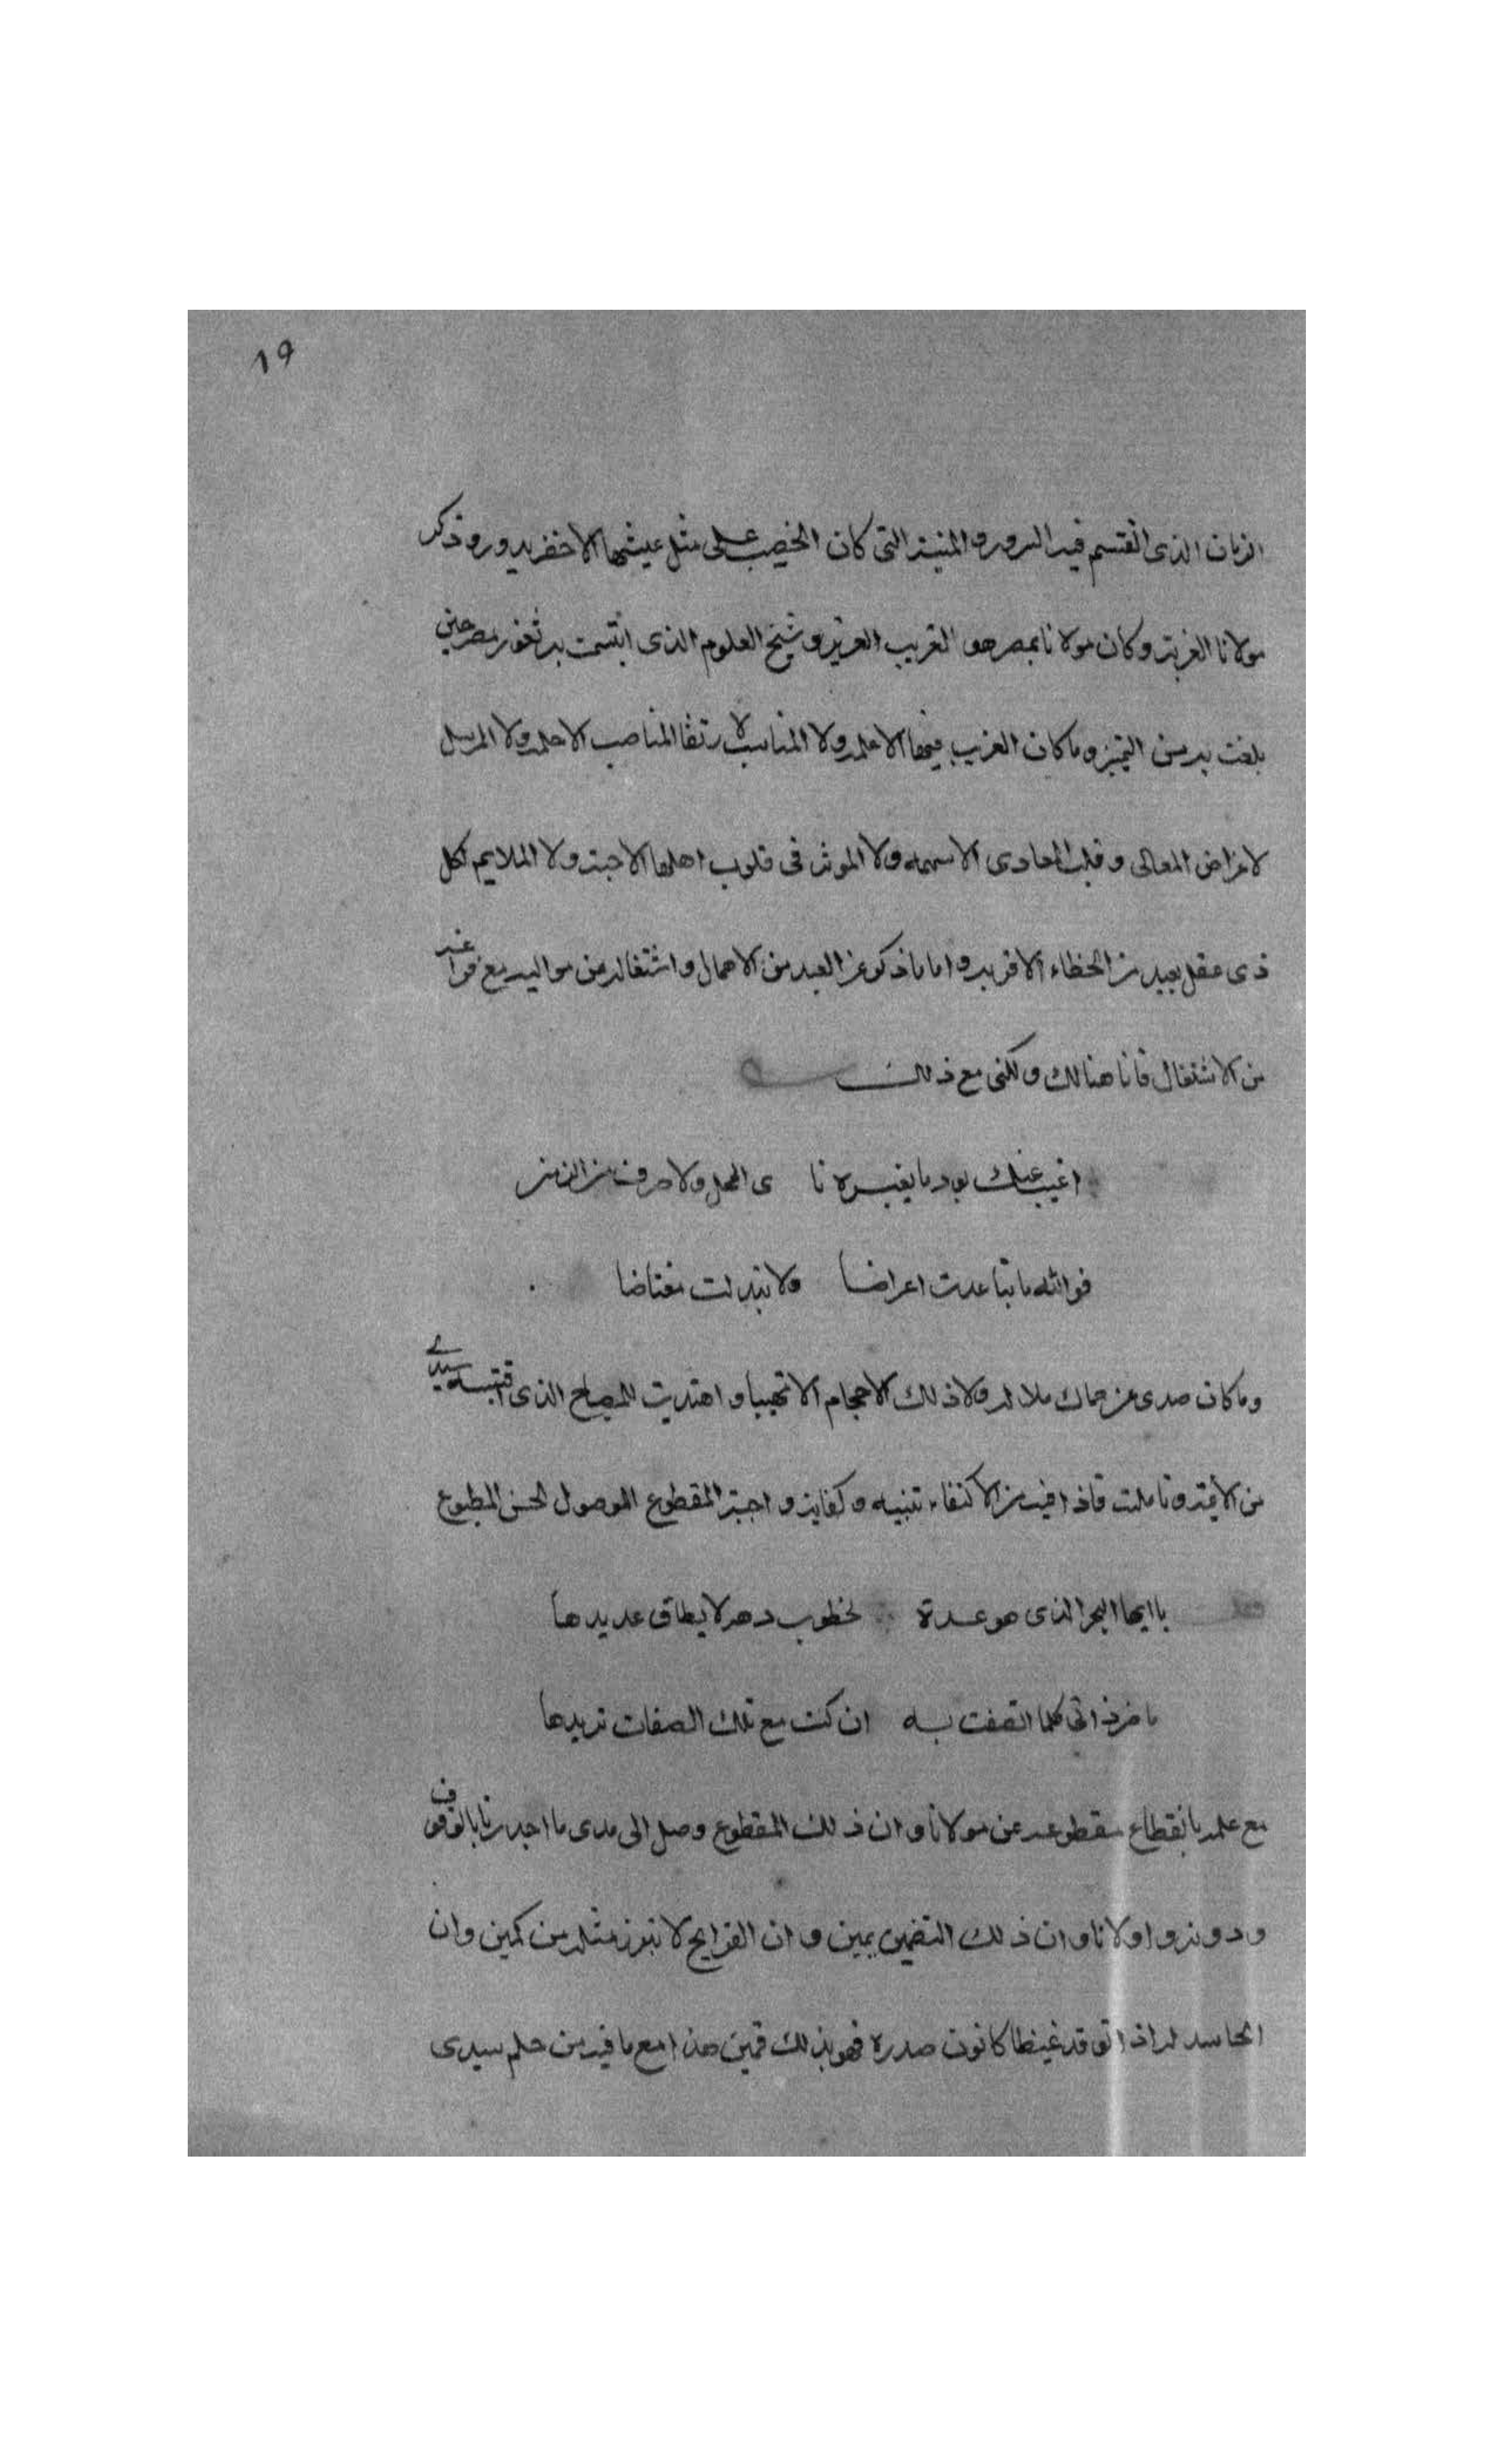 ١٩
الزمان الذى اقتسم فيه السرور والمنية التى كان الخصيب على مثل عيشها الاخضر يدور وذكر
مولانا الغربة وكان مولانا بمصر هو الغريب العزيز وشيخ العلوم الذى ابتسمت به ثغور مصر حين
بلغت به سن التميز وما كان الغريب فيها الا علمه ولا المناسب لارتقا المناصب الا حلمه ولا المرسل
لاغراض المعالى وقلب المعادى الا سهمه ولا الموثر فى قلوب اهلها الا حبه ولا الملايم لكل
ذى عقل بعيد من الخطاء الا قربه واما ما ذكر عن العبد من الاهمال واشتغاله عن مواليه مع فراغه
من الاشتغال فانا هنالك ولكنى مع ذلك
اغيب عنك بود ما يغيره نا ى المحل ولا صرف من الزمن
فوالله ما تباعدت اعراضا ولا تبدلت معتاضا
وما كان صدى عن حماك ملالة ولا ذلك الاحجام الا تهيبا واهتديت للمصباح الذى اقتبسه سيدى
من الاية وتاملت فاذا فيه من الاكتفاء تنبيه وكفاية و المقطوع الموصول الحسن المطبوع
ياايها البحر الذى هو عدة لخطوب دهر لا يطاق عديدها
ما ضر ذاتى كلما اتصفت به ان كنت مع تلك الصفات تريدها
مع علمه بانقطاع مقطوعه عن مولانا وان ذلك المقطوع وصل الى مدى ما اجدرنا بالوقوف
ودونه واولانا وان ذلك التضمين يمين وان القرايح لا تبرز مثله من كمين وان
الحاسد له اذا اتوقد غيظا كانون صدره فهو بذلك قمين هذا مع ما فيه من حلم سيدى